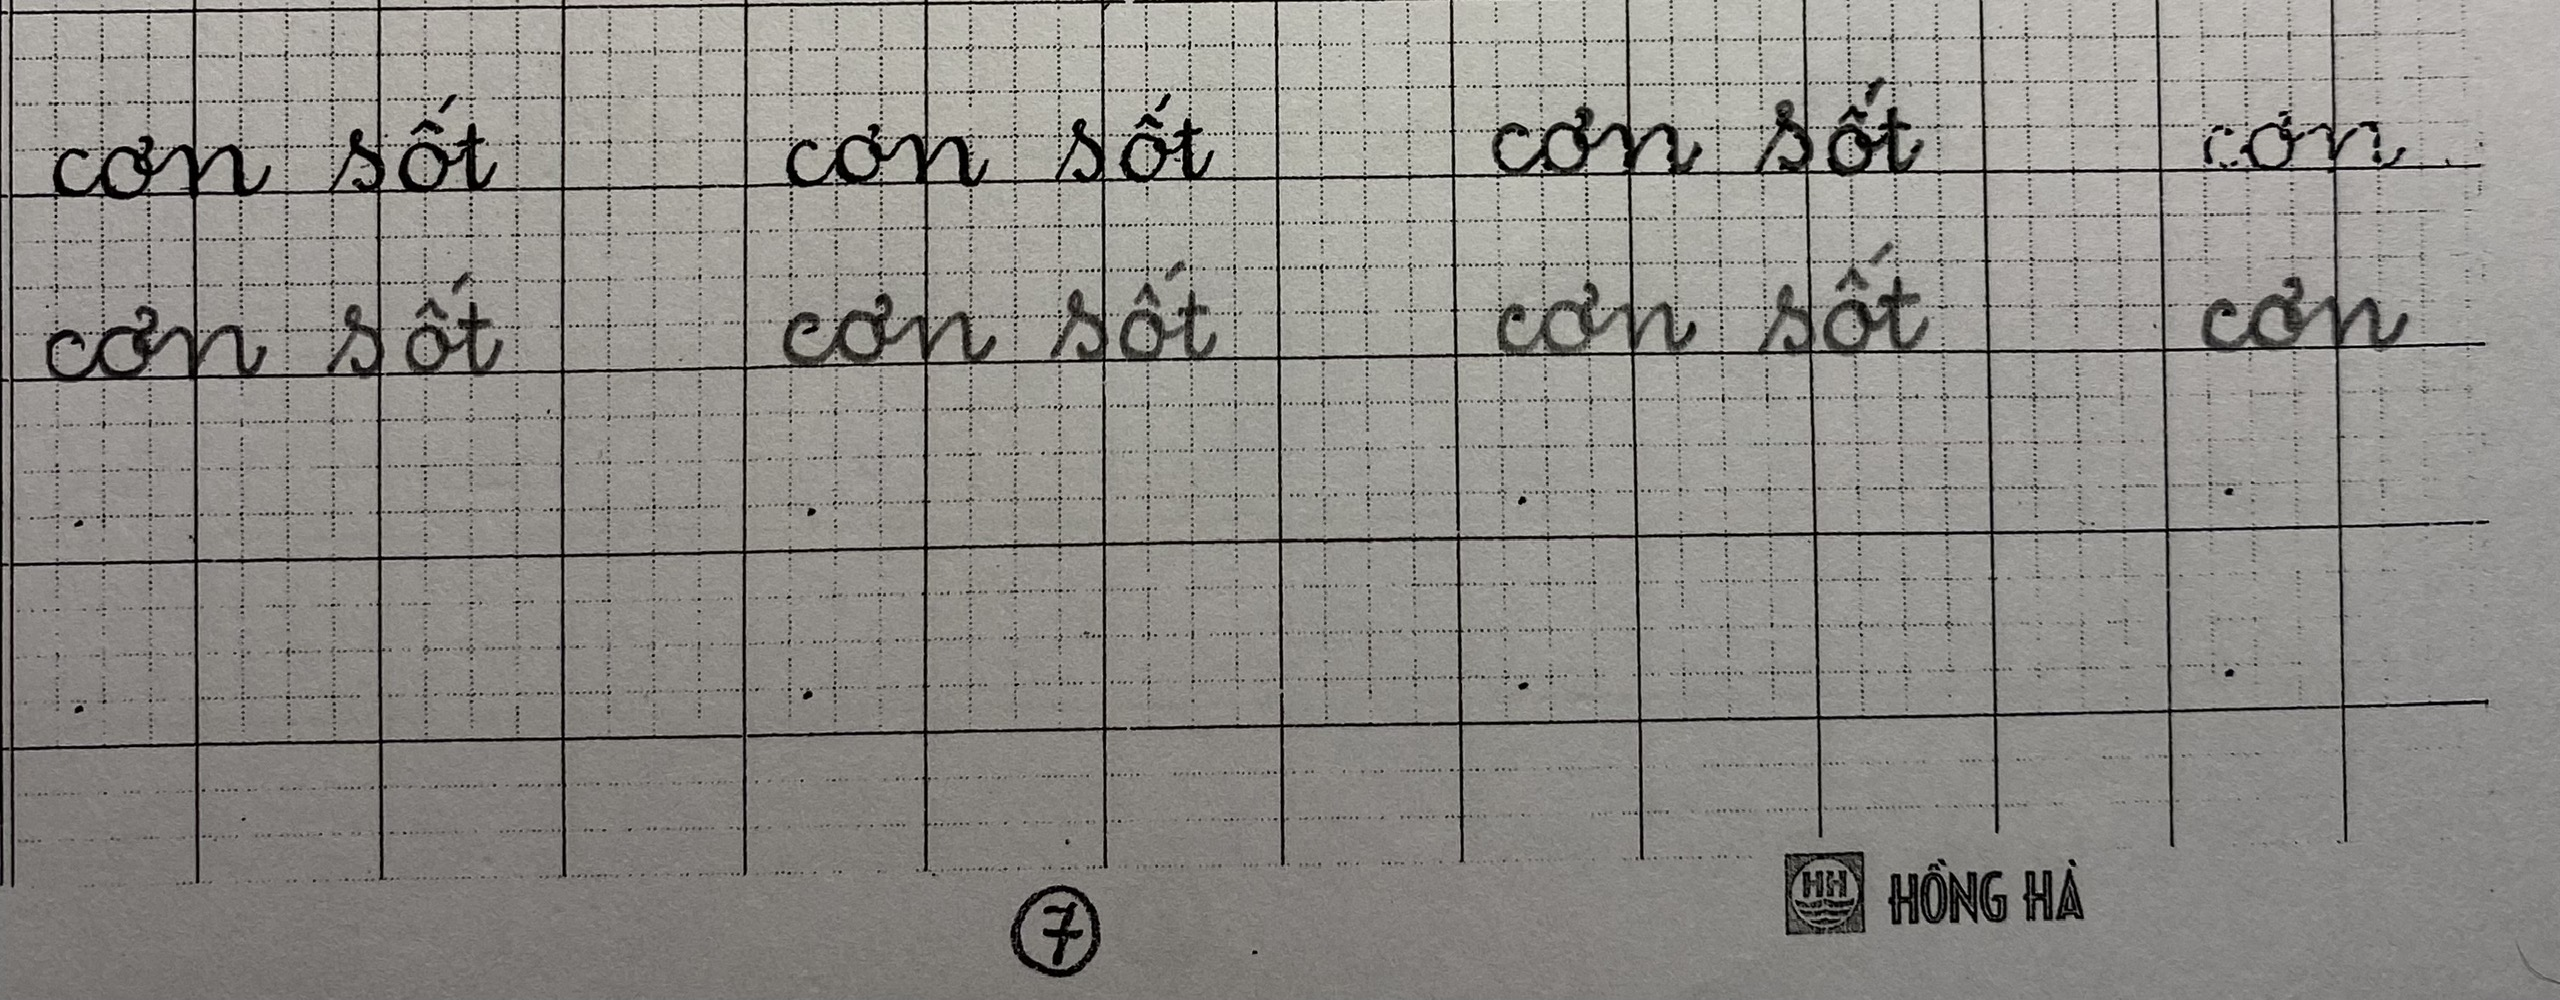 cơn sốt cơn sốt cơn sốt cơn
cơn sốt cơn sốt cơn sốt cơn
7
HH HỒNG HÀ